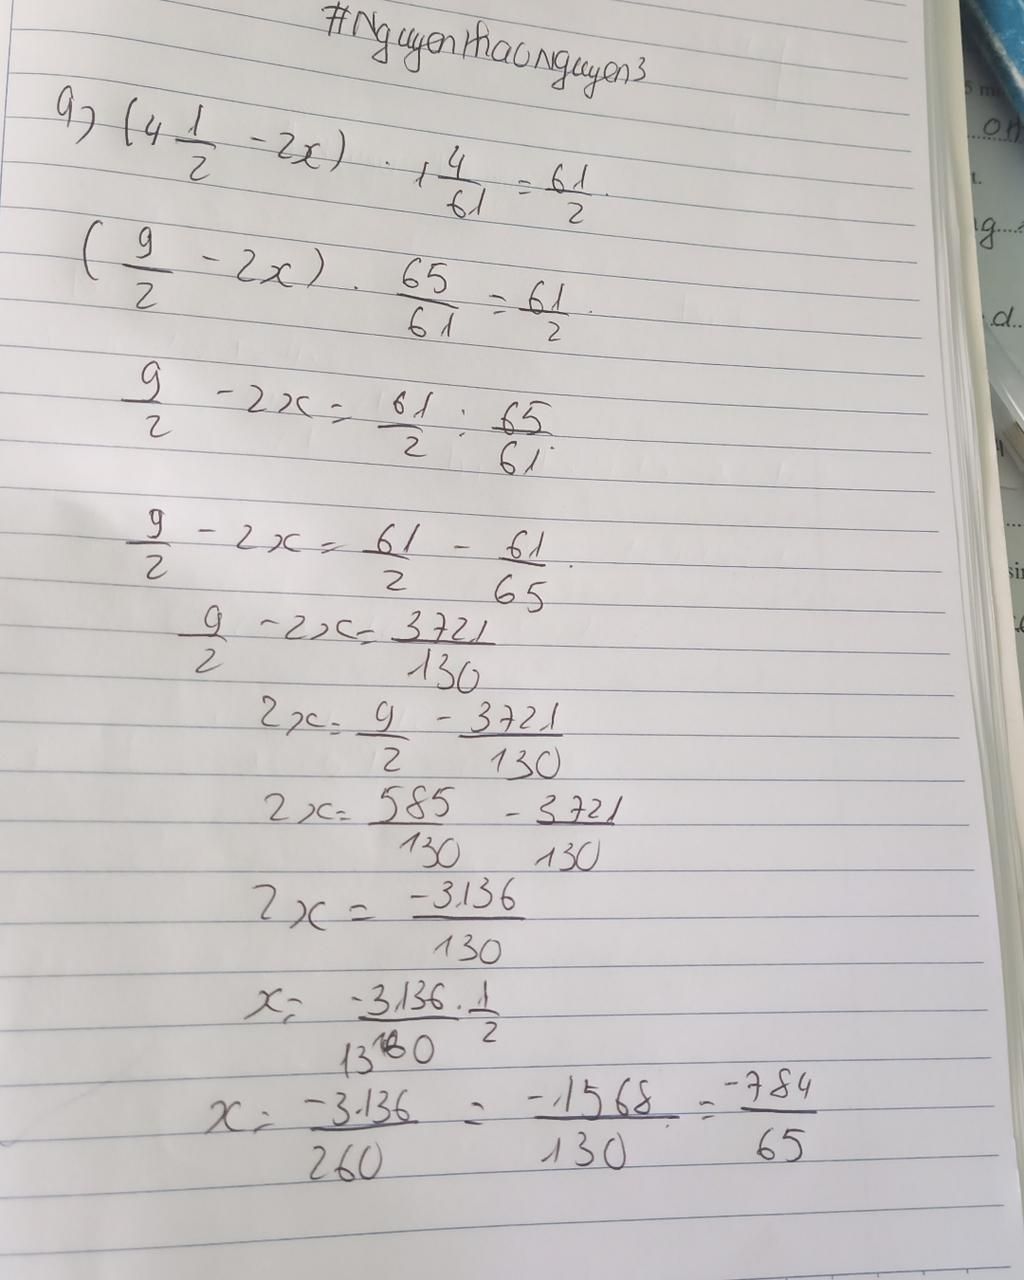 #Nguyenthaonguyen3
a) (4 1/2 - 2x) . 1 4/61 = 61/2
(9/2 - 2x) . 65/61 = 61/2
9/2 - 2x = 61/2 : 65/61
9/2 - 2x = 61/2 - 61/65
9/2 - 2x = 3721/130
2x = 9/2 - 3721/130
2x = 585/130 - 3721/130
2x = -3136/130
x = -3136/130 . 1/2
x = -3136/260 = -1568/130 = -784/65